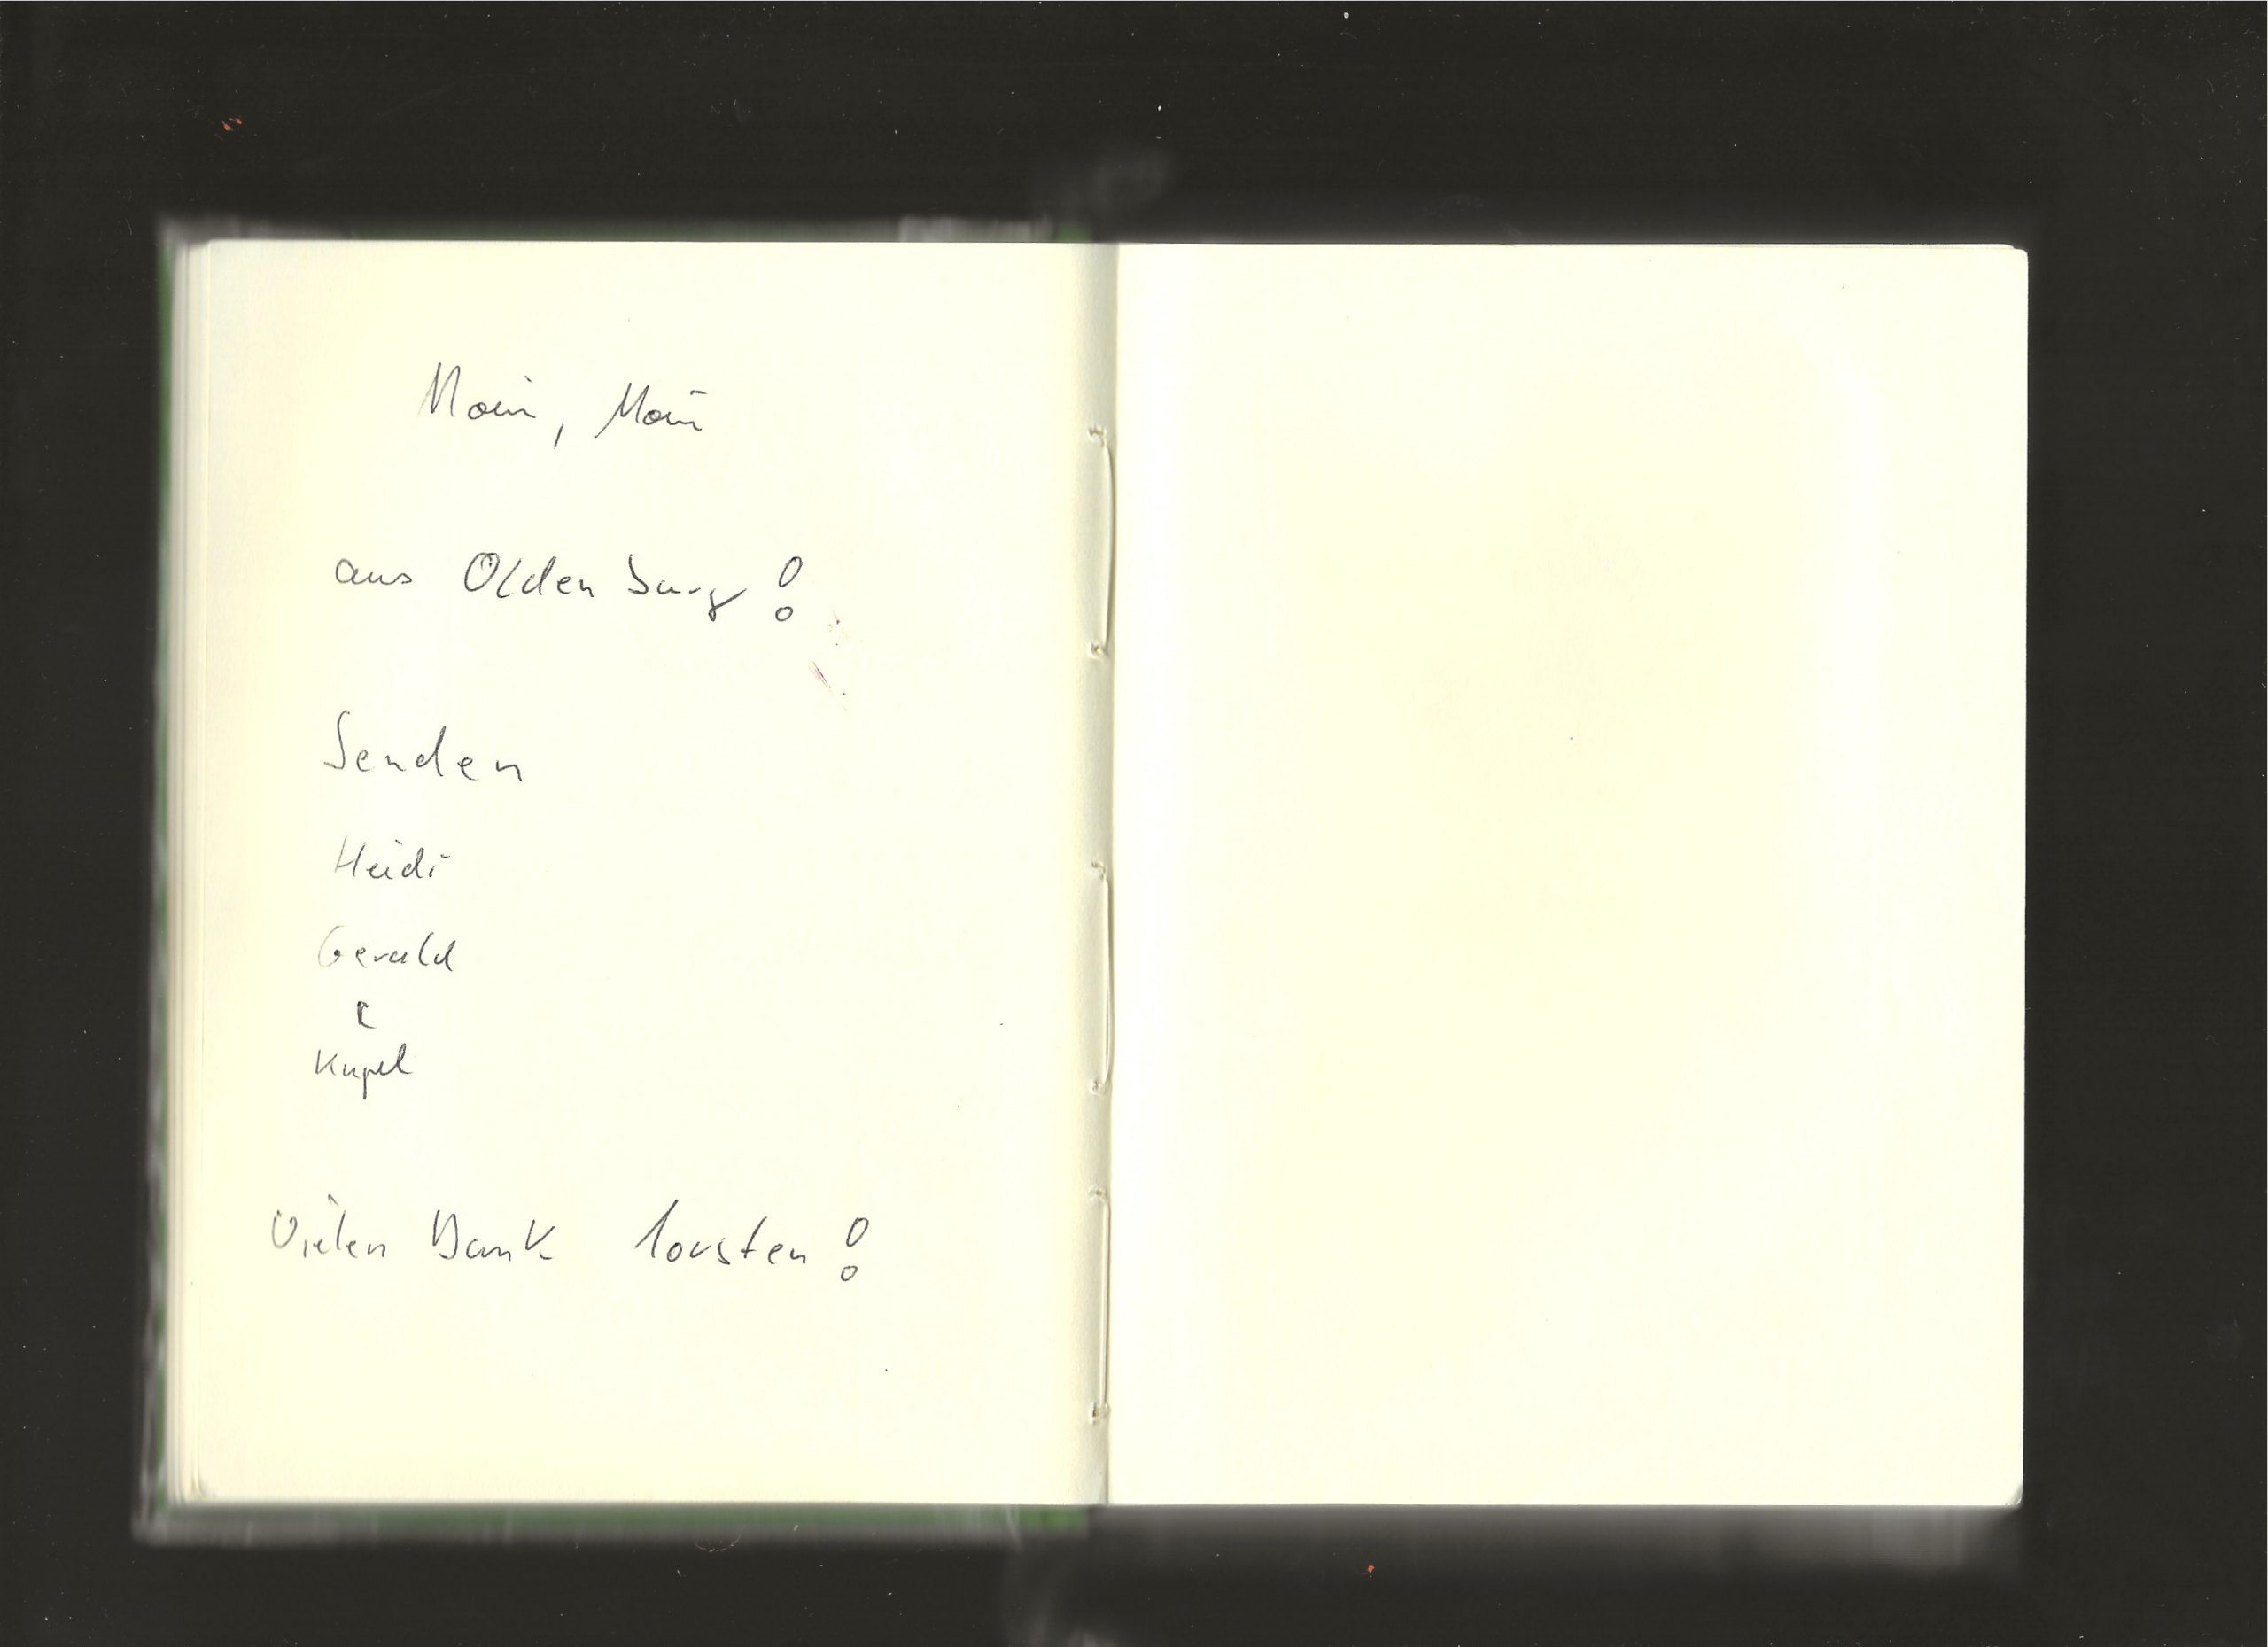 Moin, Moin
aus Oldenburg!
Senden
Heidi
Gerald
&
Vielen Dank Torsten!